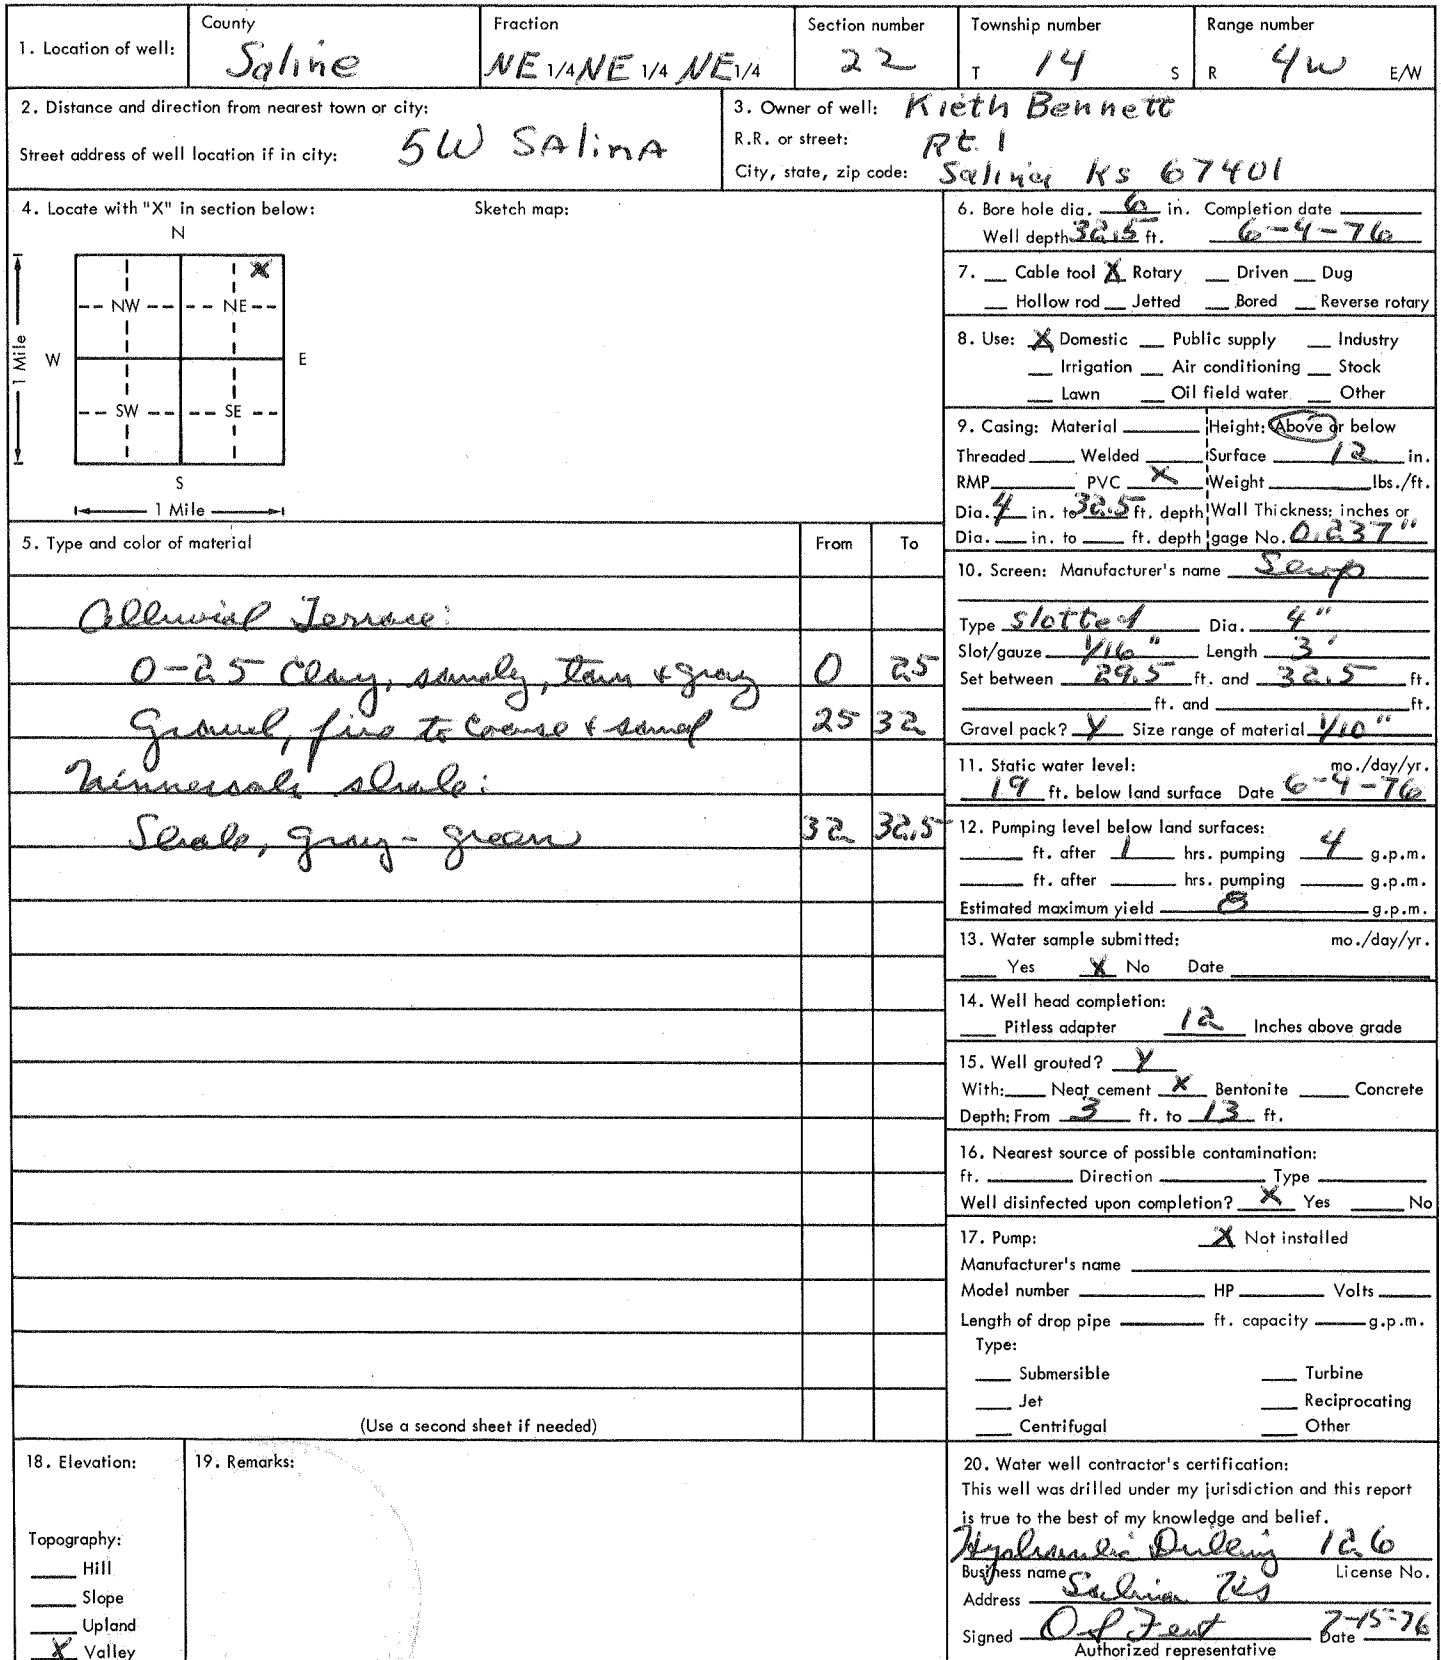 1. Location of well: County Saline Fraction NE 1/4 NE 1/4 NE 1/4 Section number 22 Township number T 14 S Range number R 4W E/W
2. Distance and direction from nearest town or city: 5W SAlinA
Street address of well location if in city:
3. Owner of well: Kieth Bennett
R.R. or street: Rt. 1
City, state, zip code: Salina Ks 67401
4. Locate with "X" in section below: Sketch map:
N
X
NW NE
W E
1 Mile
SW SE
S
1 Mile
5. Type and color of material From To
Alluvial Terrace:
0-25 Clay, sandy, tan & gray 0 25
Gravel, fine to coarse & sand 25 32
Ninnescah shale:
Shale, gray-green 32 32.5
(Use a second sheet if needed)
6. Bore hole dia. 6 in. Completion date
Well depth 32.5 ft. 6-4-76
7. Cable tool X Rotary Driven Dug
Hollow rod Jetted Bored Reverse rotary
8. Use: X Domestic Public supply Industry
Irrigation Air conditioning Stock
Lawn Oil field water Other
9. Casing: Material Height: Above or below
Threaded Welded Surface 12 in.
RMP PVC X Weight lbs./ft.
Dia. 4 in. to 32.5 ft. depth Wall Thickness: inches or
Dia. in. to ft. depth gage No. 0.237"
10. Screen: Manufacturer's name
Type slotted Dia. 4"
Slot/gauze 1/16" Length 3'
Set between 29.5 ft. and 32.5 ft.
ft. and ft.
Gravel pack? Y Size range of material 1/10"
11. Static water level: mo./day/yr.
19 ft. below land surface Date 6-4-76
12. Pumping level below land surfaces:
ft. after 1 hrs. pumping 4 g.p.m.
ft. after hrs. pumping g.p.m.
Estimated maximum yield 8 g.p.m.
13. Water sample submitted: mo./day/yr.
Yes X No Date
14. Well head completion:
Pitless adapter 12 Inches above grade
15. Well grouted? Y
With: Neat cement X Bentonite Concrete
Depth: From 3 ft. to 13 ft.
16. Nearest source of possible contamination:
ft. Direction Type
Well disinfected upon completion? X Yes No
17. Pump: X Not installed
Manufacturer's name
Model number HP Volts
Length of drop pipe ft. capacity g.p.m.
Type:
Submersible Turbine
Jet Reciprocating
Centrifugal Other
18. Elevation:
Topography:
Hill
Slope
Upland
X Valley
19. Remarks:
20. Water well contractor's certification:
This well was drilled under my jurisdiction and this report
is true to the best of my knowledge and belief.
Hydraulic Drilling 126
Business name License No.
Address Salina Ks
Signed O S Fent Date 7-15-76
Authorized representative